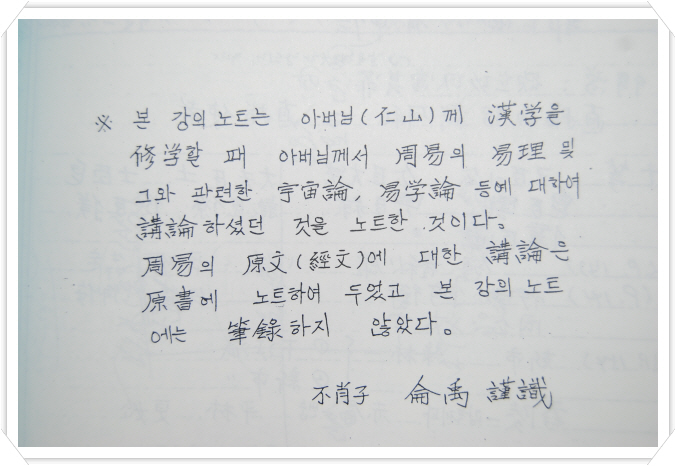 ※ 본 강의 노트는 아버님(仁山)께 漢学을
修学할 때 아버님께서 周易의 易理 및
그와 관련한 宇宙論, 易学論 등에 대하여
講論하셨던 것을 노트한 것이다.
周易의 原文(經文)에 대한 講論은
原書에 노트하여 두었고 본 강의 노트
에는 筆錄하지 않았다.
不肖子 侖禹 謹識